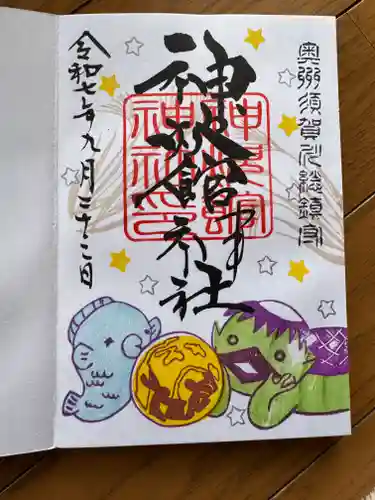 奥州須賀川総鎮守
神炊館神社
神炊館
神社印
令和七年九月二十二日